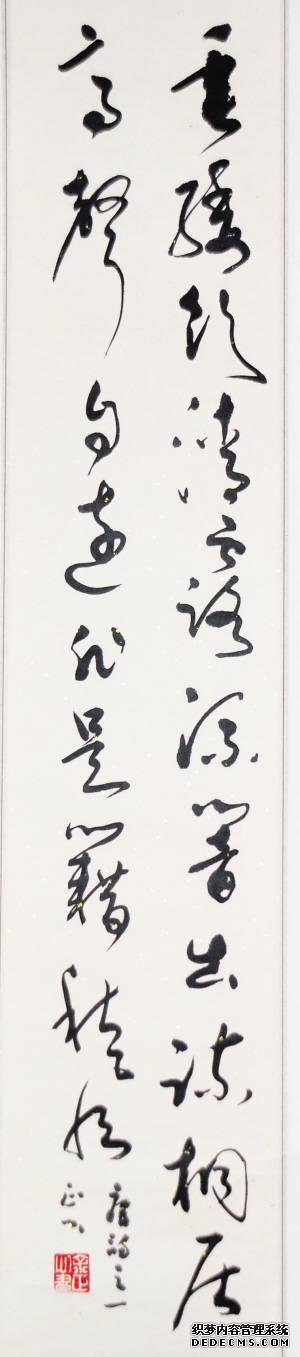 垂緌飲清露流響出疎桐居
高聲自遠非是藉秋風
唐詩之一
织梦内容管理系统
DEDECMS.COM